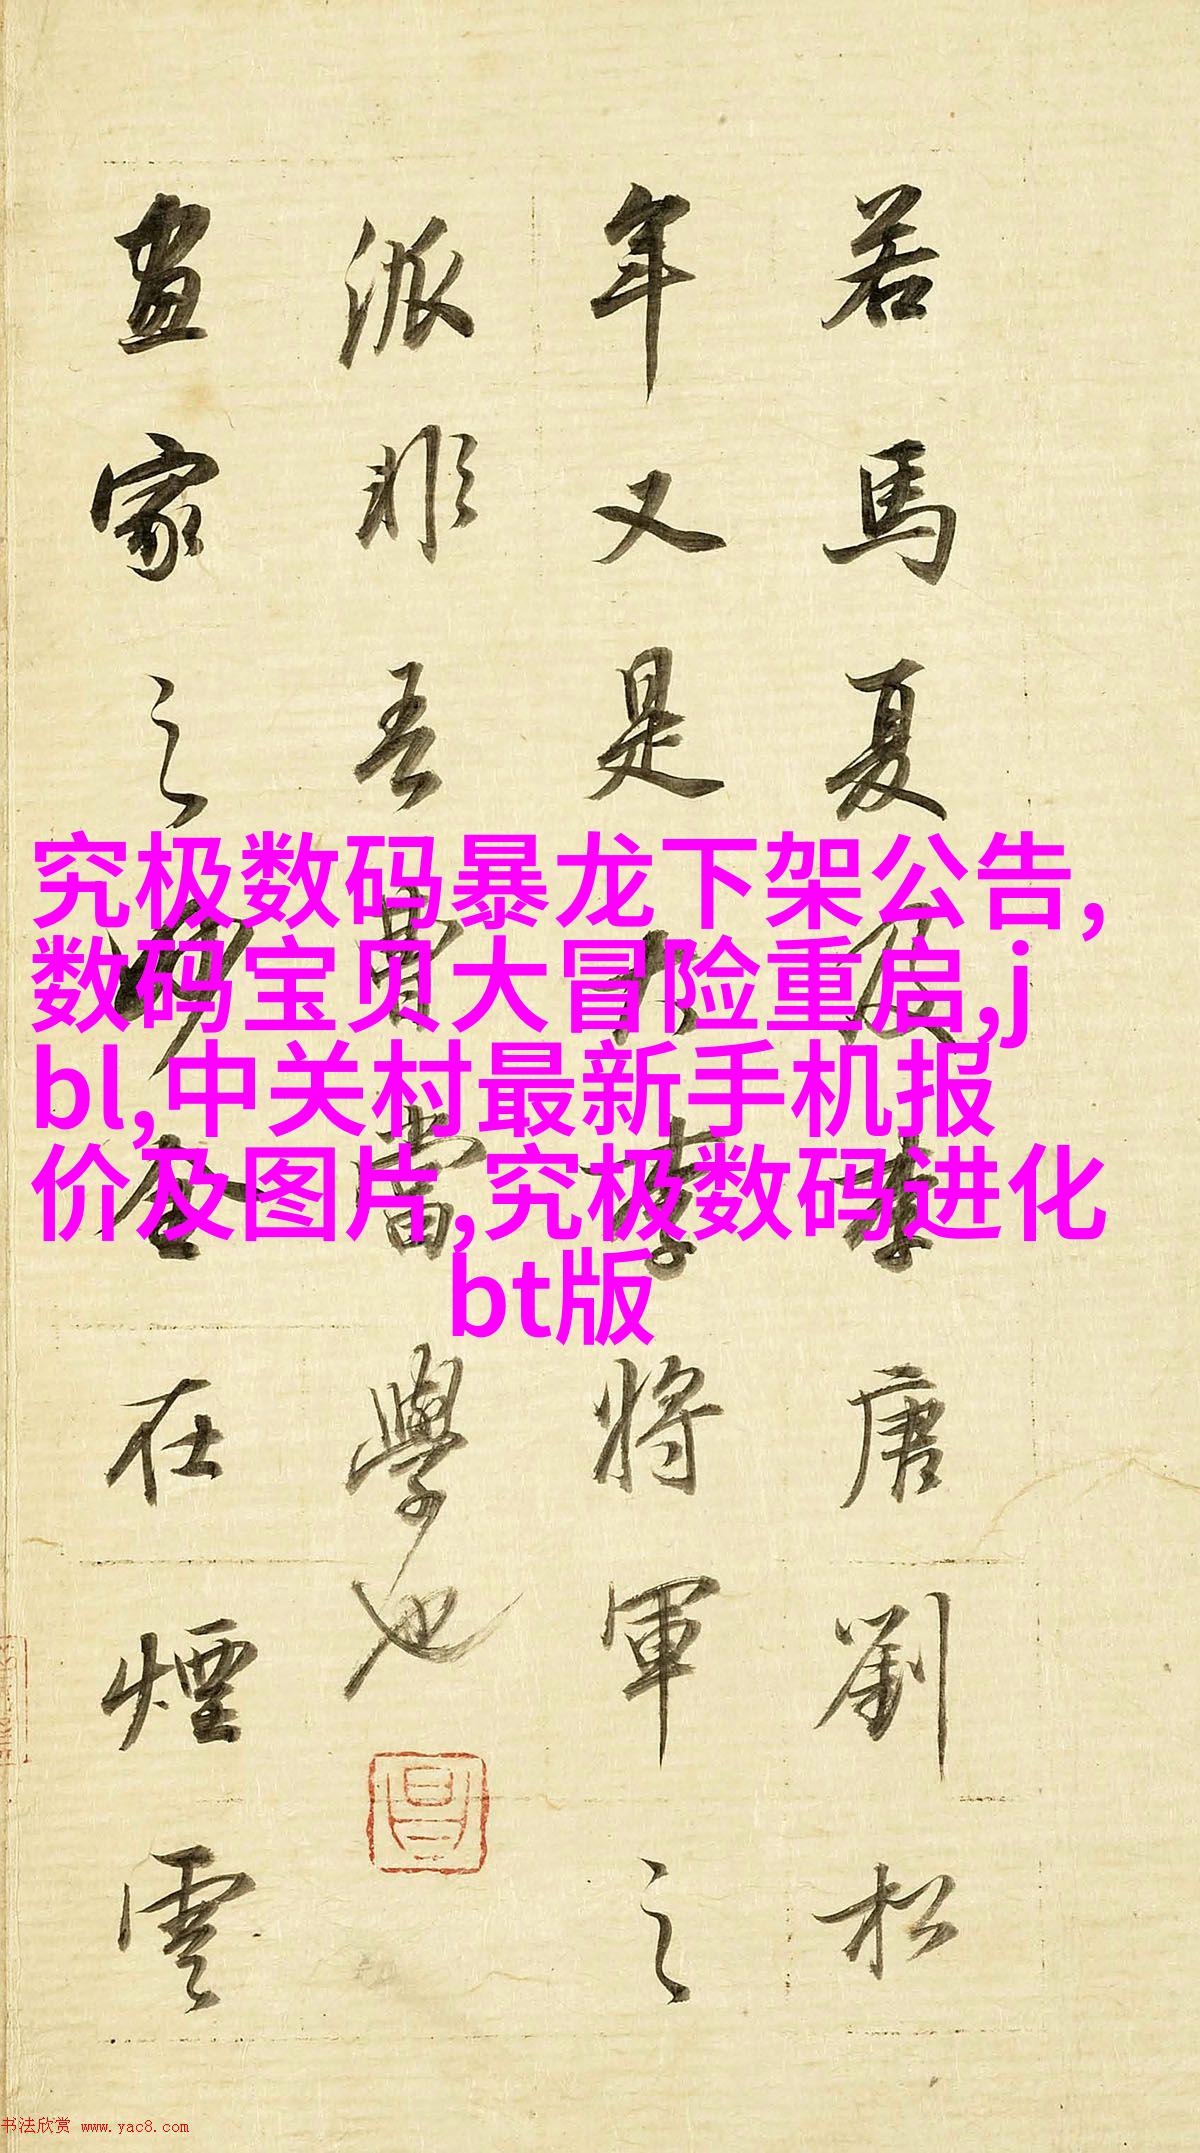 若馬夏及李唐劉松
年又是大李將軍之
派非吾曹當學也
畫家之妙全在煙雲
究极数码暴龙下架公告,
数码宝贝大冒险重启,j
bl,中关村最新手机报
价及图片,究极数码进化
bt版
书法欣赏 www.yac8.com